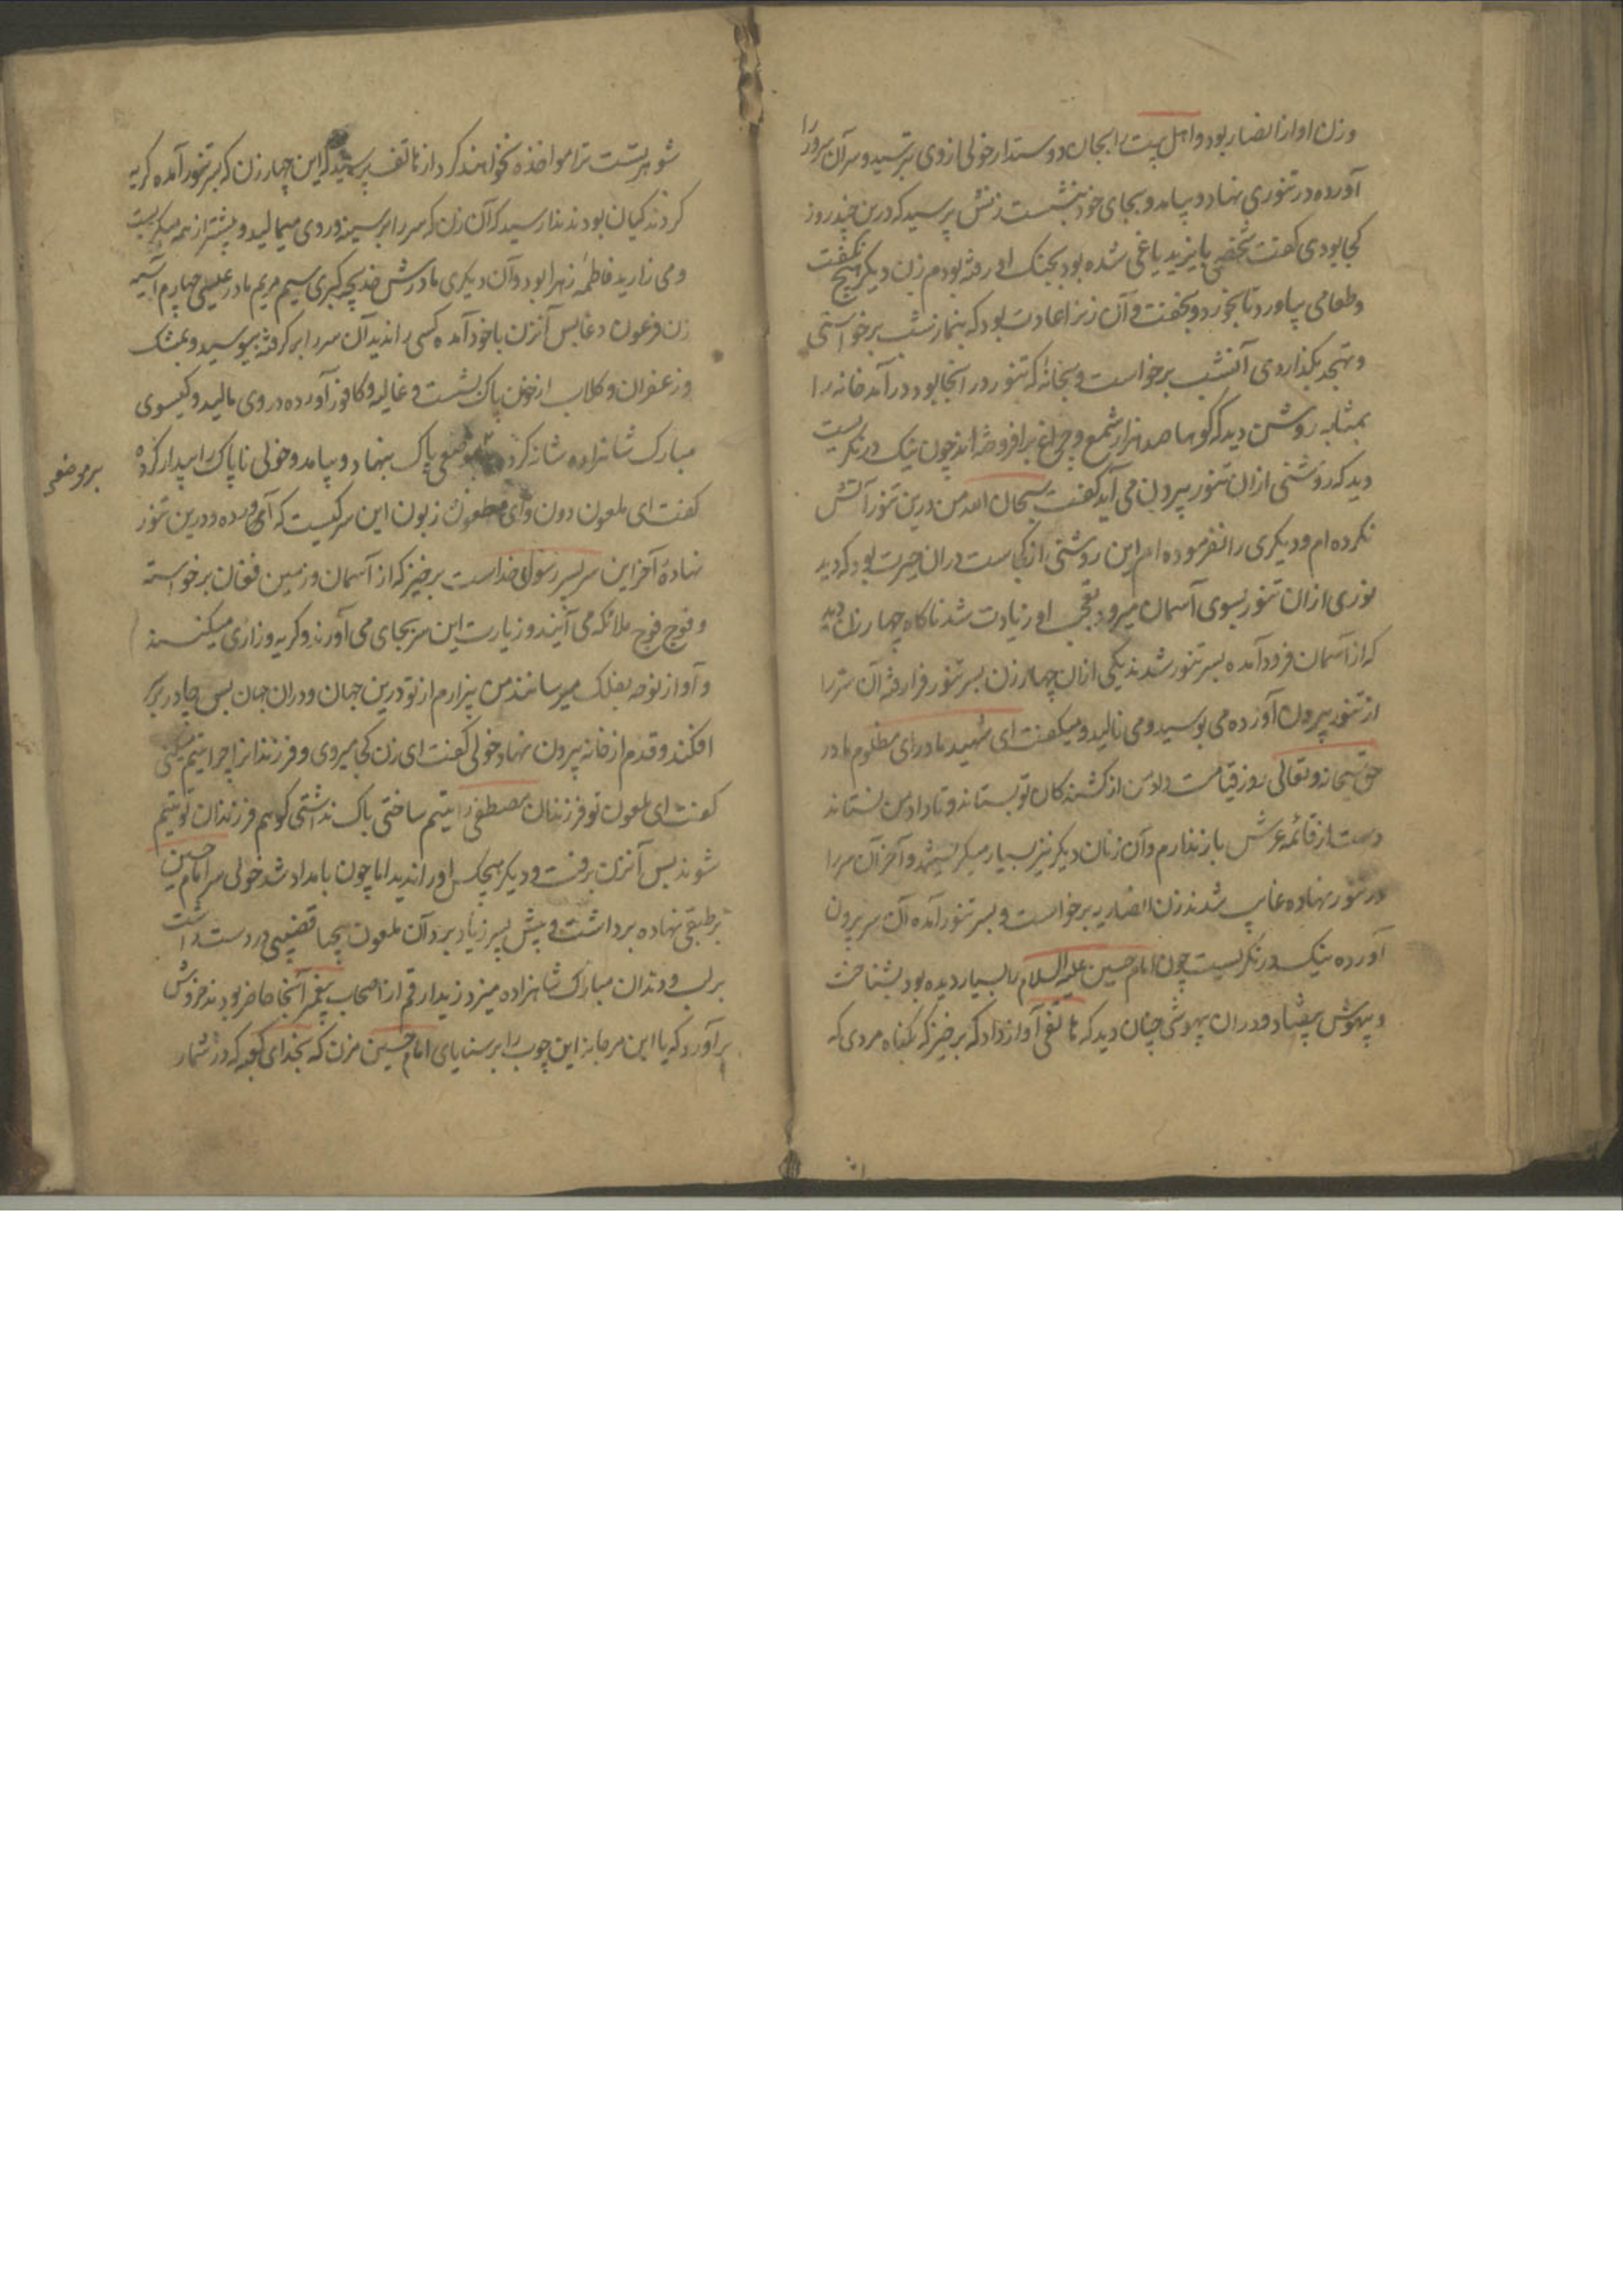 وزن او از انصار بود و اهل بیت را بجان دوستدار خولی از وی بترسید و سر آن سرور را
آورده در تنوری نهاد و بیامد و بجای خود بنشست زنش پرسید که درین چند روز
کجا بودی گفت شخصی با یزید یاغی شده بود بجنک او رفته بودم زن دیکر هیچ نکفت
و طعامی بیاورد تا بخورد و بخفت و آن زنرا عادت بود که بنماز شب برخواستی
و تهجد بکذاردی آنشب برخواست و بخانۀ که تنور در آنجا بود در آمد خانه را
بمثابه روشن دید که کویا صد هزار شمع و چراغ برافروخته اند چون نیک در نکریست
دید که روشنی ازان تنور بیرون می آید گفت سبحان الله من درین تنور آتش
نکرده ام و دیکری را نفرموده ام این روشنی از کجاست دران حیرت بود که دید
نوری ازان تنور بسوی آسمان میرود تعجب او زیادت شد ناکاه چهار زن دید
که از آسمان فرود آمده بسر تنور شدند یکی ازان چهار زن بسر تنور فرا رفته آن سر را
از تنور بیرون آورده می بوسید و می نالید و میکفت ای شهید مادر ای مظلوم مادر
حق سبحانه و تعالی روز قیامت داد من از کشندکان تو بستاند و تا داد من نستاند
دست از قائمه عرش باز ندارم و آن زنان دیکر نیز بسیار میکریستند و آخر آن سر را
در تنور نهاده غایب شدند زن انصاریه برخواست و بسر تنور آمده آن سر بیرون
آورده نیک در نکریست چون امام حسین علیه السلام را بسیار دیده بود بشناخت
و بیهوش بیفتاد و دران بیهوشی چنان دید که هاتفی آواز داد که برخیز که بکناه مردی که
شوهر تست ترا مواخذه نخواهند کرد از هاتف پرسید که این چهار زن که بسر تنور آمده کریه
کردند کیان بودند ندا رسید که آن زن که سر را بر سینه و روی میمالید و بیشتر از همه میکریست
و می زارید فاطمه زهرا بود و آن دیکری مادرش خدیجه کبری سیم مریم مادر عیسی چهارم آسیه
زن فرعون پس آنزن با خود آمده کسی را ندید آن سر را برکرفته ببوسید و بمشک
و زعفران و کلاب از خون پاک بشست و غالیه و کافور آورده در وی مالید و کیسوی
مبارک شاهزاده شانه کرده موضعی پاک بنهاد و بیامد و خولی ناپاک را بیدار کرده
بر موضعی
گفت ای ملعون دون و ای مطعون زبون این سر کیست که آورده و درین تنور
نهادۀ آخر این سر پسر رسول خداست برخیز که از آسمان و زمین فغان برخواسته
و فوج فوج ملائکه می آیند و زیارت این سر بجای می آورند و کریه و زاری میکنند
و آواز نوحه بفلک میرسانند من بیزارم از تو درین جهان و دران جهان پس چادر بر سر
افکند و قدم از خانه بیرون نهاد خولی گفت ای زن کجا میروی و فرزندانرا چرا یتیم میکنی
گفت ای ملعون تو فرزندان مصطفی را یتیم ساختی باک نداشتی کو هم فرزندان تو یتیم
شوند پس آنزن برفت و دیکر هیچکس او را ندید اما چون بامداد شد خولی سر امام حسین
بر طبقی نهاده برداشت و پیش پسر زیاد برد آن ملعون بیحیا قضیبی در دست داشت
بر لب و دندان مبارک شاهزاده میزد زید ارقم از اصحاب پیغمبر آنجا حاضر بودند خروش
برآورد که یا ابن مرجانه این چوب را بر ثنایای امام حسین مزن که بخدای کعبه که در شمار